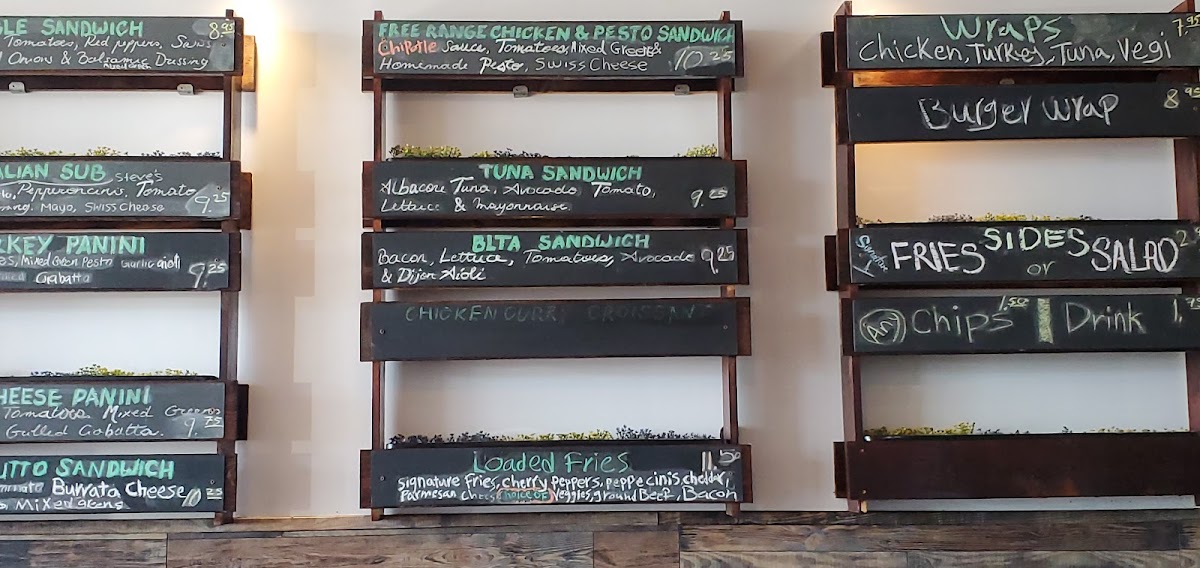 SANDWICH 8.95
Tomatoes, Red peppers,
Onion & Balsamic Dressing
SUB Steve's
Pepperoncinis, Tomato
Mayo, Swiss Cheese 9.25
PANINI
Mixed Green Pesto Garlic aioli
Ciabatta 9.25
PANINI
Tomatoes Mixed Greens
Grilled Ciabatta. 9.75
SANDWICH
Burrata Cheese
Mixed greens 10.25
FREE RANGE CHICKEN & PESTO SANDWICH
Chipotle Sauce, Tomatoes, Mixed Greens &
Homemade Pesto, SWISS Cheese 10.25
TUNA SANDWICH
Albacore Tuna, Avocado Tomato,
Lettuce & Mayonnaise. 9.25
BLTA SANDWICH
Bacon, Lettuce, Tomatoes, Avocado 9.25
& Dijon Aioli
CHICKEN CURRY CROISSANT
Loaded Fries 11.50
signature Fries, cherry peppers, peppecinis, cheddar,
Parmesan chees choice of veggies, ground Beef, Bacon
Wraps 7.95
Chicken, Turkey, Tuna, Vegi
Burger Wrap 8.95
SIDES
FRIES or SALAD
Any Chips 1.50 Drink 1.75